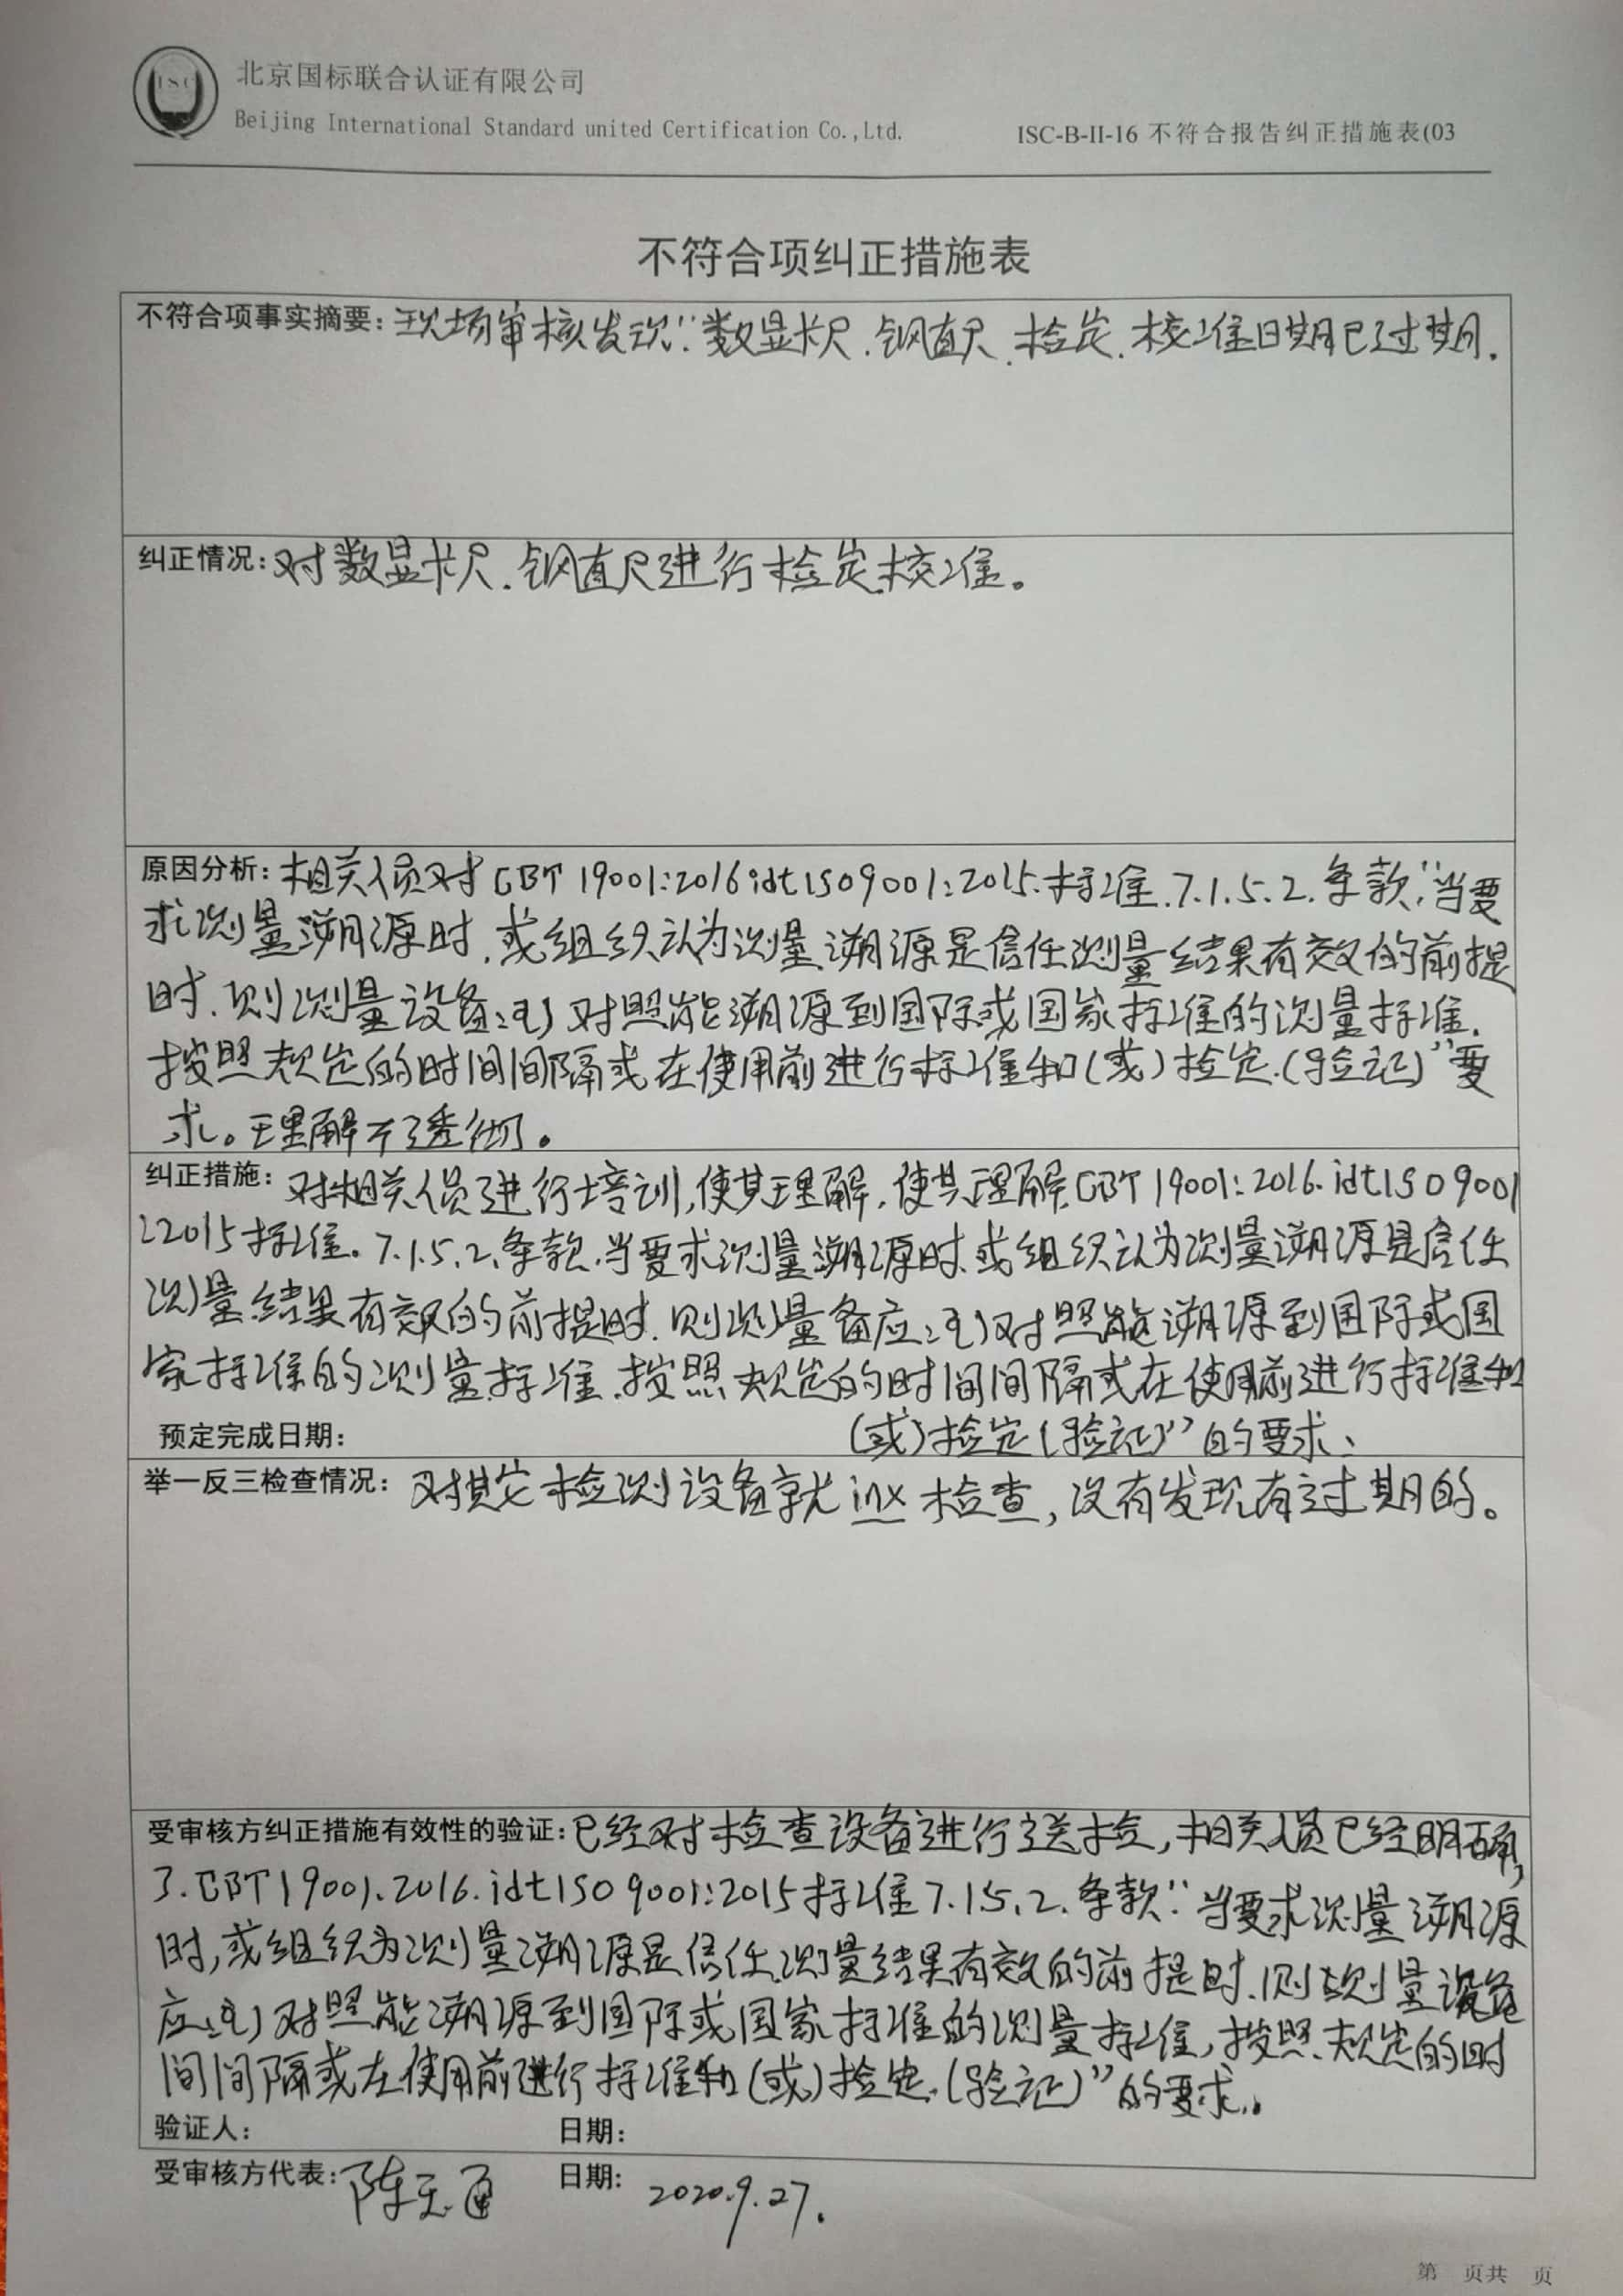 ISC
北京国标联合认证有限公司
Beijing International Standard united Certification Co.,Ltd.
ISC-B-II-16 不符合报告纠正措施表(03
不符合项纠正措施表
不符合项事实摘要：现场审核发现："数显卡尺．钢直尺．检定．校准日期已过期．
纠正情况：对数显卡尺．钢直尺进行检定．校准。
原因分析：相关人员对GBT 19001:2016idtISO9001:2015.标准.7.1.5.2.条款："当要
求测量溯源时．或组织认为测量溯源是信任测量结果有效的前提
时．则测量设备：a）对照能溯源到国际或国家标准的测量标准．
按照规定的时间间隔或在使用前进行标准和(或)检定.(验证)"要
求。理解不透彻。
纠正措施：对相关人员进行培训，使其理解．使其理解GBT 19001:2016.idtISO9001
:2015标准。7.1.5.2.条款．当要求测量溯源时．或组织认为测量溯源是信任
测量结果有效的前提时．则测量备应：a）对照能溯源到国际或国
家标准的测量标准．按照规定的时间间隔或在使用前进行标准和
预定完成日期：
(或)检定(验证)"的要求、
举一反三检查情况：对其它检测设备就 检查，没有发现有过期的。
受审核方纠正措施有效性的验证：已经对检查设备进行了送检，相关人员已经明确，
了.GBT19001.2016.idtISO9001:2015标准7.1.5.2.条款："当要求测量溯源
时，或组织为测量溯源是信任测量结果有效的前提时．则 测量设备
应：a）对照能溯源到国际或国家标准的测量标准，按照规定的时
间间隔或在使用前进行标准和(或)检定.(验证)"的要求..
验证人： 日期：
受审核方代表：陈 日期：2020.9.27.
第 页共 页